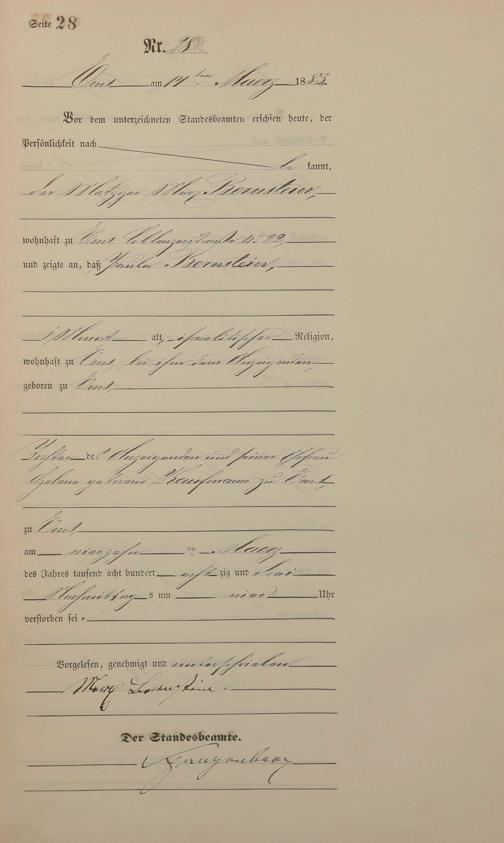 Seite 28
Nr. 28
Ems am 14ten Maerz 1883
Vor dem unterzeichneten Standesbeamten erschien heute, der
Persönlichkeit nach
be kannt,
der Metzger Marx Bernstein,
wohnhaft zu Ems, Coblenzerstraße No 22,
und zeigte an, daß Paula Bernstein,
1 Monat alt, israelitischer Religion,
wohnhaft zu Ems, bei ihm dem Anzeigenden,
geboren zu Ems,
Tochter des Anzeigenden und seiner Ehefrau
Helene geborene Kaufmann zu Ems,
zu Ems,
am vierzehn ten Maerz
des Jahres tausend acht hundert acht zig und drei
Nachmittag s um Uhr
verstorben sei.
Vorgelesen, genehmigt und unterschrieben
Marx Bernstein.
Der Standesbeamte.